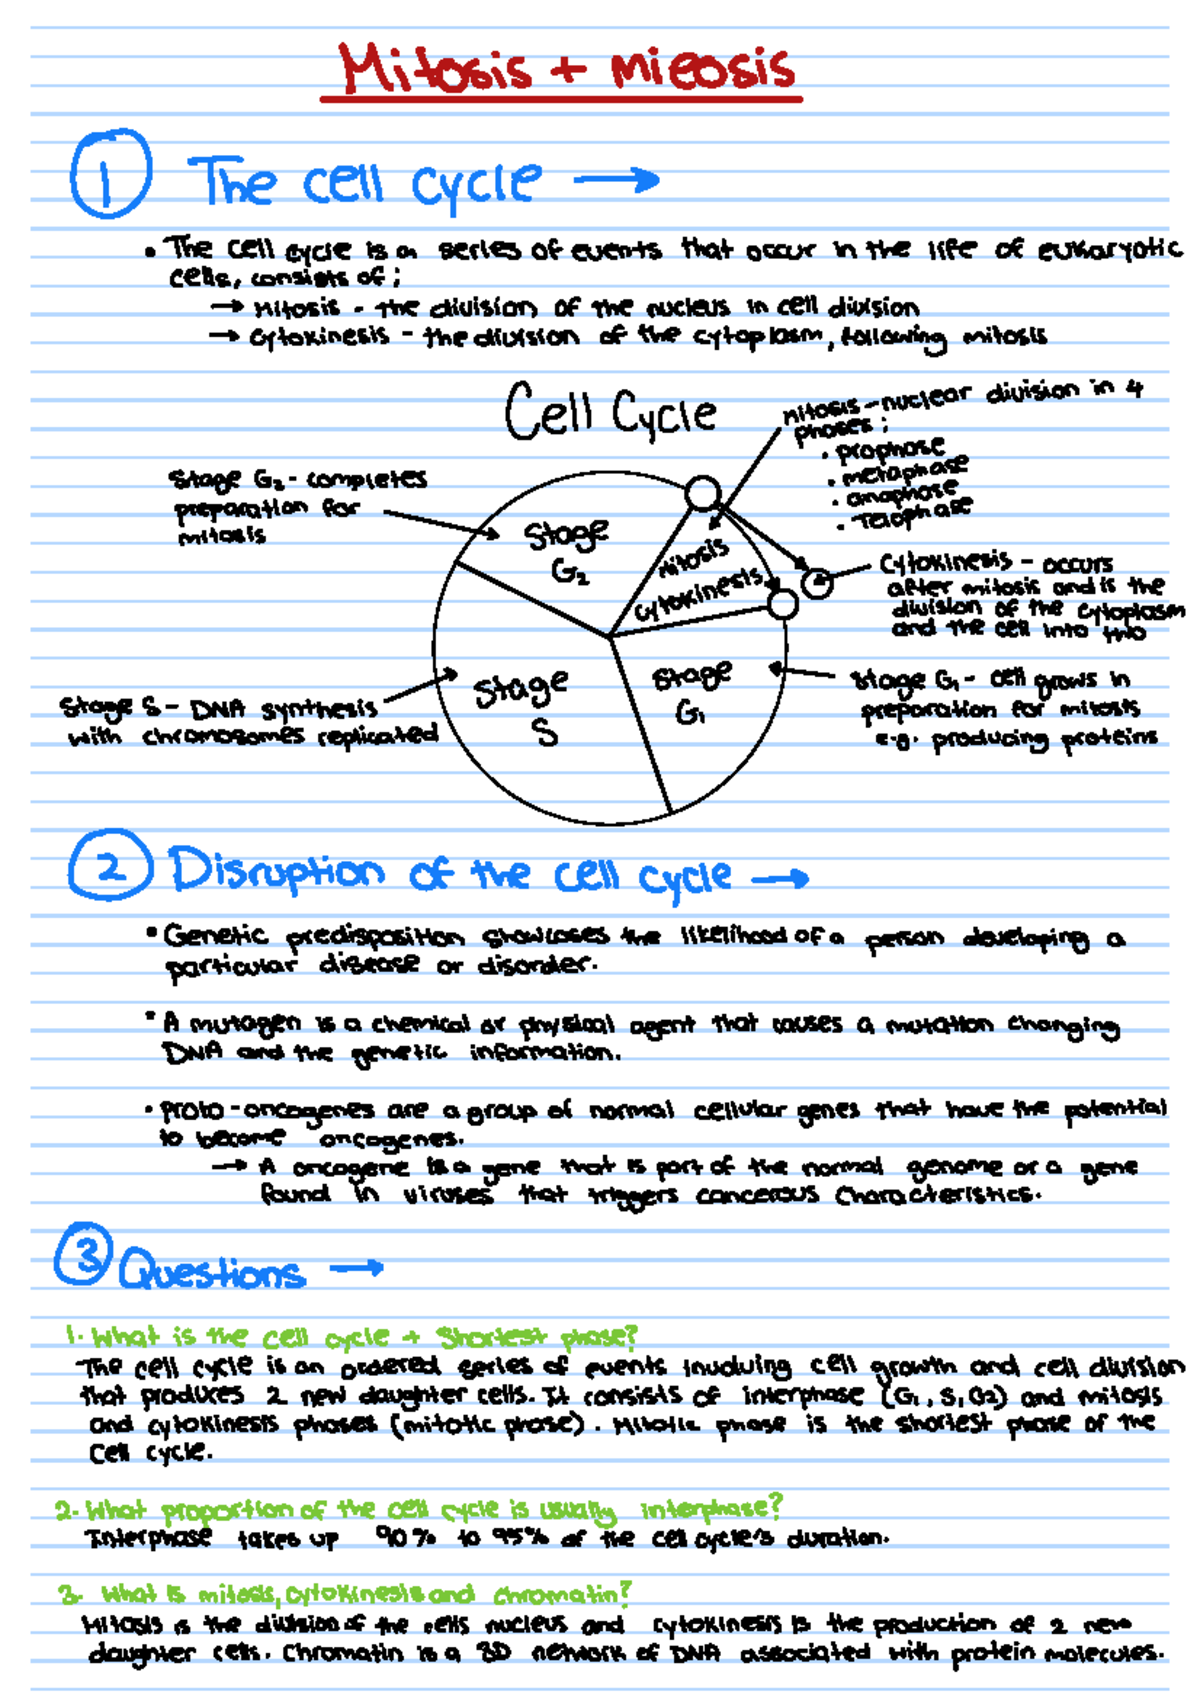 Mitosis + mieosis
1 The cell cycle →
• The cell cycle is a series of events that occur in the life of eukaryotic
cells, consists of ;
→ Mitosis - the division of the nucleus in cell division
→ Cytokinesis - the division of the cytoplasm, following mitosis
Cell Cycle
mitosis - nuclear division in 4
phases ;
• prophase
• metaphase
• anaphase
• Telophase
Stage G₂ - completes
preparation for
mitosis
Stage
G₂
Mitosis
Cytokinesis
Cytokinesis - occurs
after mitosis and is the
division of the cytoplasm
and the cell into two
Stage S - DNA synthesis
with chromosomes replicated
Stage
S
Stage
G₁
Stage G₁ - cell grows in
preparation for mitosis
e.g. producing proteins
2 Disruption of the cell cycle →
• Genetic predisposition showcases the likelihood of a person developing a
particular disease or disorder.
• A mutagen is a chemical or physical agent that causes a mutation changing
DNA and the genetic information.
• Proto-oncogenes are a group of normal cellular genes that have the potential
to become oncogenes.
→ A oncogene is a gene that is part of the normal genome or a gene
found in viruses that triggers cancerous characteristics.
3 Questions →
1. What is the cell cycle + Shortest phase?
The cell cycle is an ordered series of events involving cell growth and cell division
that produces 2 new daughter cells. It consists of interphase (G₁, S, G₂) and mitosis
and cytokinesis phases (mitotic phase). Mitotic phase is the shortest phase of the
Cell cycle.
2. What proportion of the cell cycle is usually interphase?
Interphase takes up 90% to 95% of the cell cycle's duration.
3. What is mitosis, cytokinesis and chromatin?
Mitosis is the division of the cells nucleus and cytokinesis is the production of 2 new
daughter cells. Chromatin is a 3D network of DNA associated with protein molecules.